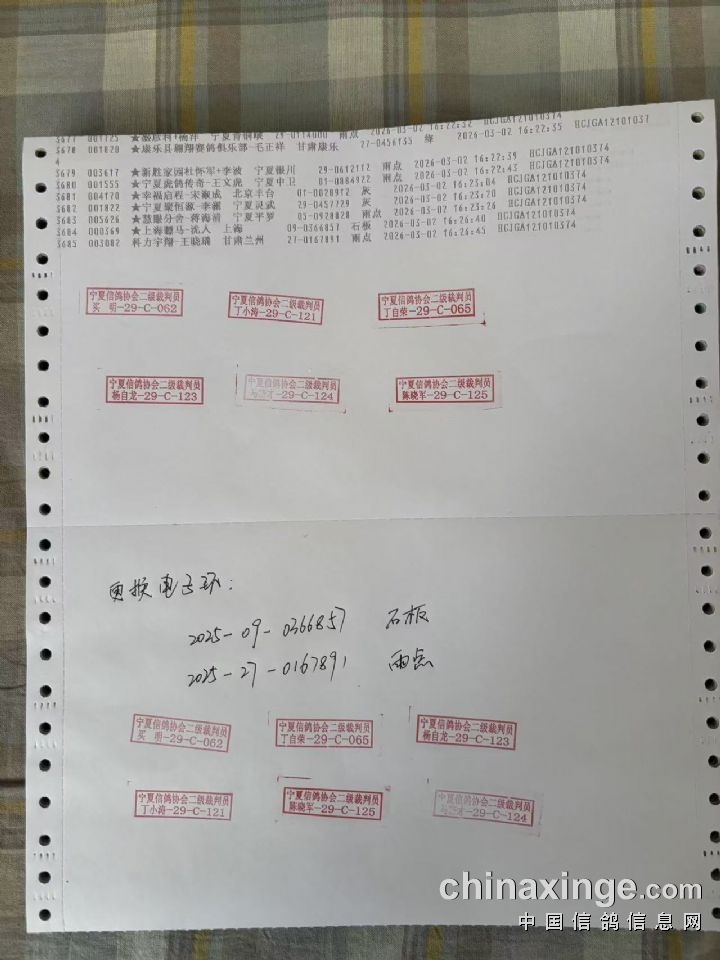 3677 001725 宁夏青铜峡 29-0114000 雨点 2026-03-02 16:22:32 HCJGA121010374
3678 001820 ★康乐县翱翔赛鸽俱乐部-毛正祥 甘肃康乐 27-0456135 绛 2026-03-02 16:22:35 HCJGA12101037
4
3679 003617 ★新胜家园杜怀军+李波 宁夏银川 29-0612112 雨点 2026-03-02 16:22:39 HCJGA121010374
3680 001555 ★宁夏虎鸽传奇-王文虎 宁夏中卫 01-0884922 雨点 2026-03-02 16:22:43 HCJGA121010374
3681 004170 ★幸福启程-宋淑成 北京丰台 01-0020912 灰 2026-03-02 16:23:04 HCJGA121010374
3682 001822 ★宁夏蒙恒源-李 宁夏灵武 29-0457729 灰 2026-03-02 16:23:20 HCJGA121010374
3683 005626 ★慧眼分舍-蒋海清 宁夏平罗 05-0928828 雨点 2026-03-02 16:23:26 HCJGA121010374
3684 000369 ★上海 马-沈人 上海 09-0366857 石板 2026-03-02 16:26:40 HCJGA121010374
3685 003082 科力宇翔-王晓 甘肃兰州 27-0167891 雨点 2026-03-02 16:26:45 HCJGA121010374
宁夏信鸽协会二级裁判员 宁夏信鸽协会二级裁判员 宁夏信鸽协会二级裁判员
买 明-29-C-062 丁小涛-29-C-121 丁自荣-29-C-065
宁夏信鸽协会二级裁判员 宁夏信鸽协会二级裁判员 宁夏信鸽协会二级裁判员
杨自龙-29-C-123 -29-C-124 陈晓军-29-C-125
更换电子环:
2025-09-0366857 石板
2025-27-0167891 雨点
宁夏信鸽协会二级裁判员 宁夏信鸽协会二级裁判员 宁夏信鸽协会二级裁判员
买 明-29-C-062 丁自荣-29-C-065 杨自龙-29-C-123
宁夏信鸽协会二级裁判员 宁夏信鸽协会二级裁判员 宁夏信鸽协会二级裁判员
丁小涛-29-C-121 陈晓军-29-C-125 -29-C-124
chinaxinge.com
中国信鸽信息网